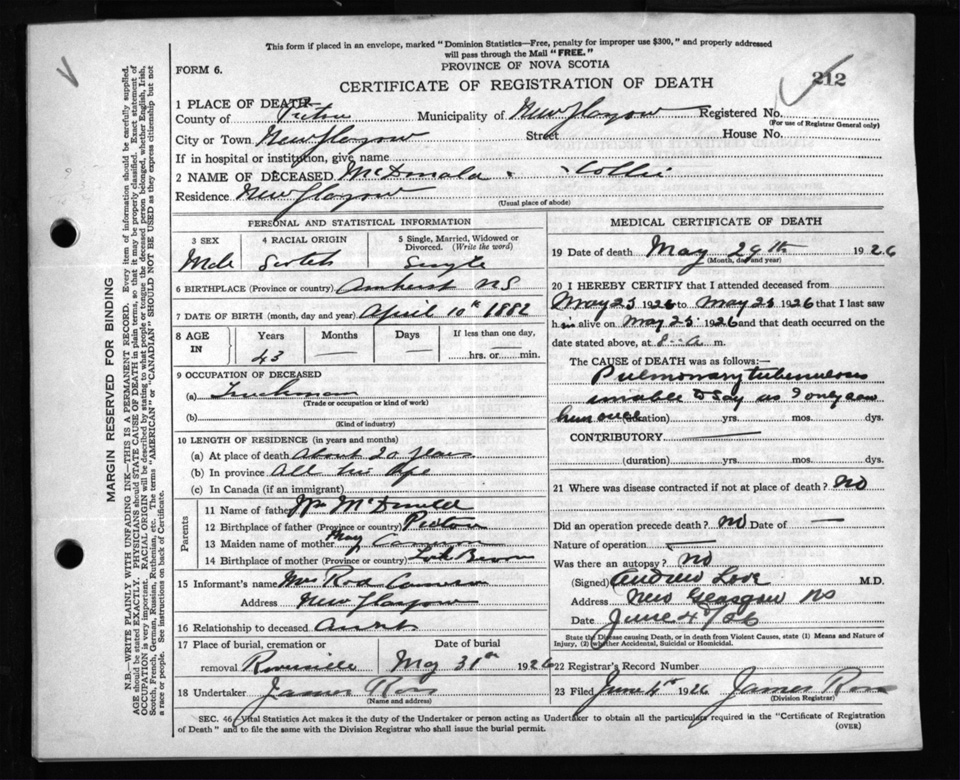 This form if placed in an envelope, marked "Dominion Statistics—Free, penalty for improper use $300," and properly addressed
will pass through the Mail "FREE."
PROVINCE OF NOVA SCOTIA
FORM 6.
CERTIFICATE OF REGISTRATION OF DEATH
212
1 PLACE OF DEATH
County of Pictou Municipality of New Glasgow Registered No.
(For use of Registrar General only)
City or Town New Glasgow Street House No.
If in hospital or institution, give name
2 NAME OF DECEASED McDonald Collie
Residence New Glasgow
(Usual place of abode)
PERSONAL AND STATISTICAL INFORMATION
3 SEX 4 RACIAL ORIGIN 5 Single, Married, Widowed or Divorced. (Write the word)
Male Scotch Single
6 BIRTHPLACE (Province or country) Amherst NS
7 DATE OF BIRTH (month, day and year) April 10th 1882
8 AGE IN Years Months Days If less than one day,
43 — — — hrs. or min.
9 OCCUPATION OF DECEASED
(a) Truckman
(Trade or occupation or kind of work)
(b)
(Kind of industry)
10 LENGTH OF RESIDENCE (in years and months)
(a) At place of death About 20 years
(b) In province All his life
(c) In Canada (if an immigrant)
Parents
11 Name of father Wm McDonald
12 Birthplace of father (Province or country) Pictou
13 Maiden name of mother May Cameron
14 Birthplace of mother (Province or country)
15 Informant's name Mrs Rod Cameron
Address New Glasgow
16 Relationship to deceased Aunt
17 Place of burial, cremation or removal Riverside
Date of burial May 31st 1926
18 Undertaker James Ross
(Name and address)
MEDICAL CERTIFICATE OF DEATH
19 Date of death May 29th 1926
(Month, day and year)
20 I HEREBY CERTIFY that I attended deceased from
May 25 1926 to May 25 1926 that I last saw
him alive on May 25 1926 and that death occurred on
date stated above, at 8 a m.
The CAUSE OF DEATH was as follows:—
Pulmonary tuberculosis
unable to say as I only saw
him once (duration) yrs. mos. dys.
CONTRIBUTORY
(duration) yrs. mos. dys.
21 Where was disease contracted if not at place of death? No
Did an operation precede death? No Date of —
Nature of operation —
Was there an autopsy? No
(Signed) Andrew Love M.D.
Address New Glasgow NS
Date June 4/26
State the Disease causing Death, or in death from Violent Causes, state (1) Means and Nature of
Injury, (2) whether Accidental, Suicidal or Homicidal.
22 Registrar's Record Number
23 Filed June 4th 1926 James Ross
(Division Registrar)
SEC. 46—Vital Statistics Act makes it the duty of the Undertaker or person acting as Undertaker to obtain all the particulars required in the "Certificate of Registration
of Death" and to file the same with the Division Registrar who shall issue the burial permit.
(OVER)
MARGIN RESERVED FOR BINDING
N.B.—WRITE PLAINLY WITH UNFADING INK—THIS IS A PERMANENT RECORD. Every item of information should be carefully supplied.
AGE should be stated EXACTLY. PHYSICIANS should STATE CAUSE OF DEATH in plain terms, so that it may be properly classified. Exact statement of
OCCUPATION is very important. RACIAL ORIGIN will be described by stating to what people or tongue the deceased person belonged, whether English, Irish,
Scotch, French, German, Russian, Ruthenian, etc. The terms "AMERICAN" or "CANADIAN" SHOULD NOT BE USED as they express citizenship but not
a race or people. See instructions on back of Certificate.